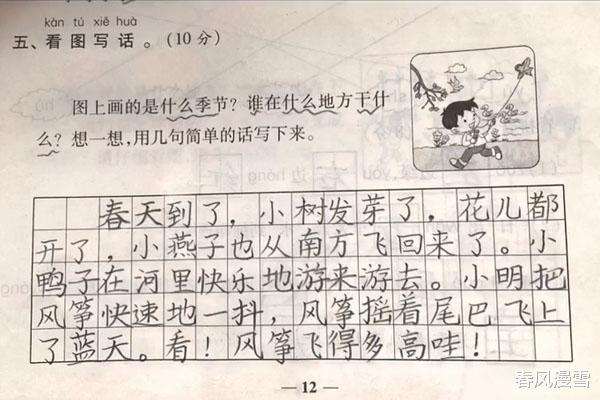 kàn tú xiě huà
五、看图写话。(10分)
图上画的是什么季节?谁在什么地方干什
么?想一想,用几句简单的话写下来。
春天到了,小树发芽了,花儿都
开了,小燕子也从南方飞回来了。小
鸭子在河里快乐地游来游去。小明把
风筝快速地一抖,风筝摇着尾巴飞上
了蓝天。看!风筝飞得多高哇!
— 12 —
春风漫雪